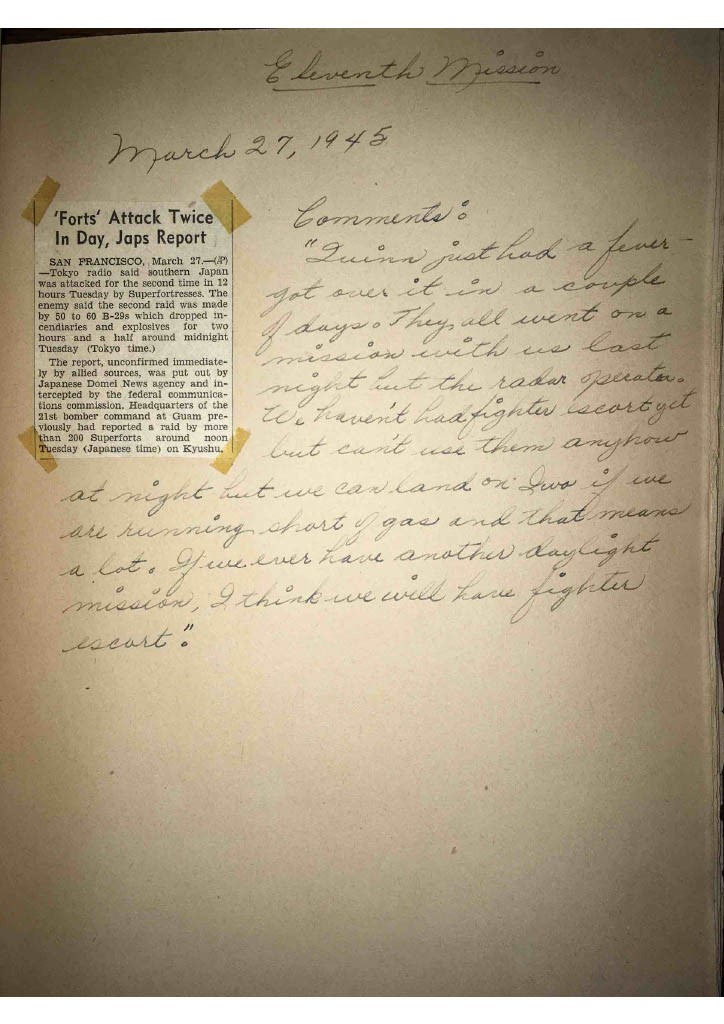 Eleventh Mission
March 27, 1945
'Forts' Attack Twice
In Day, Japs Report
SAN FRANCISCO, March 27.—(AP)
—Tokyo radio said southern Japan
was attacked for the second time in 12
hours Tuesday by Superfortresses. The
enemy said the second raid was made
by 50 to 60 B-29s which dropped in-
cendiaries and explosives for two
hours and a half around midnight
Tuesday (Tokyo time.)
The report, unconfirmed immediate-
ly by allied sources, was put out by
Japanese Domei News agency and in-
tercepted by the federal communica-
tions commission. Headquarters of the
21st bomber command at Guam pre-
viously had reported a raid by more
than 200 Superforts around noon
Tuesday (Japanese time) on Kyushu.
Comments:
"Quinn just had a fever-
got over it in a couple
of days. They all went on a
mission with us last
night but the radar operator.
We haven't had fighter escort yet
but can't use them anyhow
at night but we can land on Iwo if we
are running short of gas and that means
a lot. If we ever have another daylight
mission, I think we will have fighter
escort".